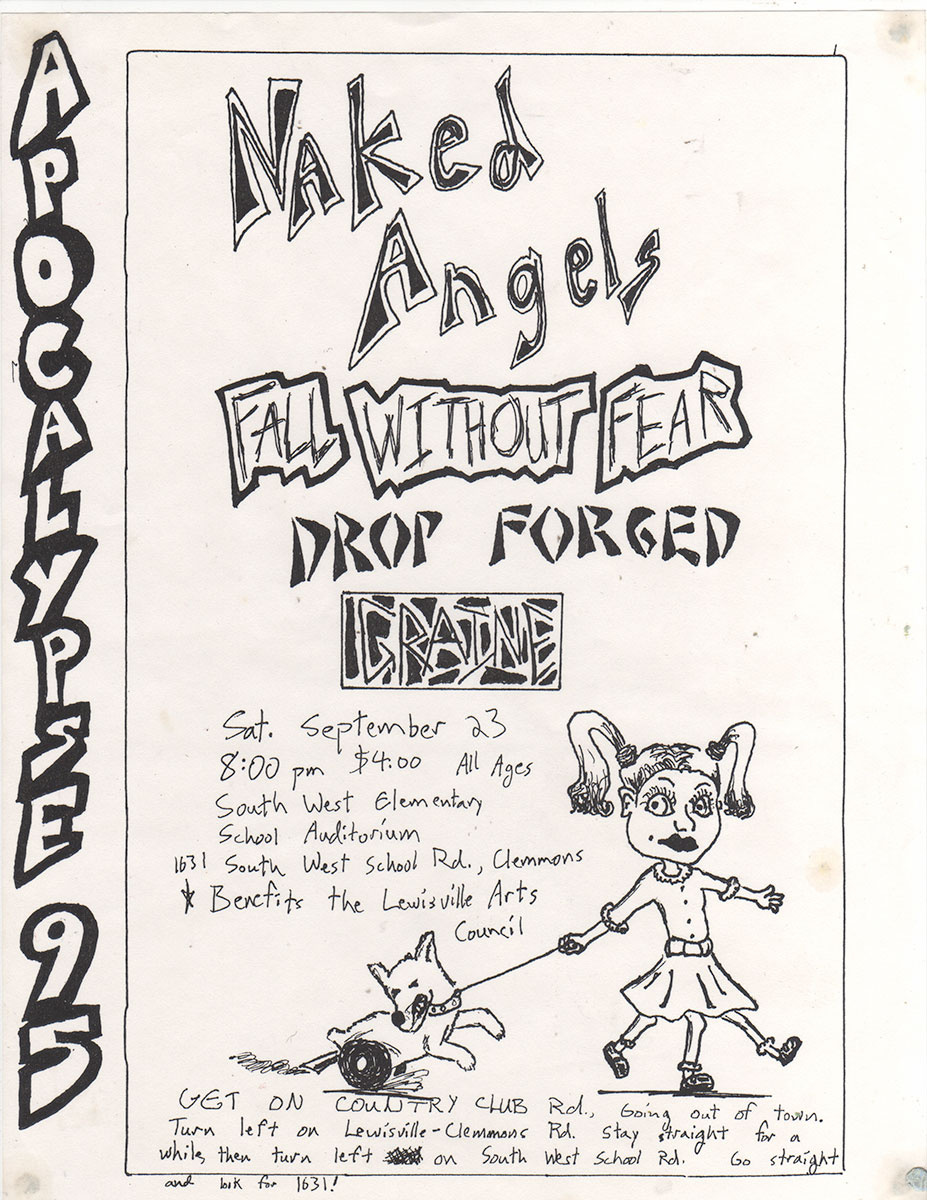 APOCALYPSE 95
Naked
Angels
FALL WITHOUT FEAR
DROP FORGED
IGRAINE
Sat. September 23
8:00 pm $4.00 All Ages
South West Elementary
School Auditorium
1631 South West School Rd., Clemmons
* Benefits the Lewisville Arts
Council
GET ON COUNTRY CLUB Rd., Going out of town.
Turn left on Lewisville-Clemmons Rd. Stay straight for a
while, then turn left on South West School Rd. Go straight
and look for 1631!